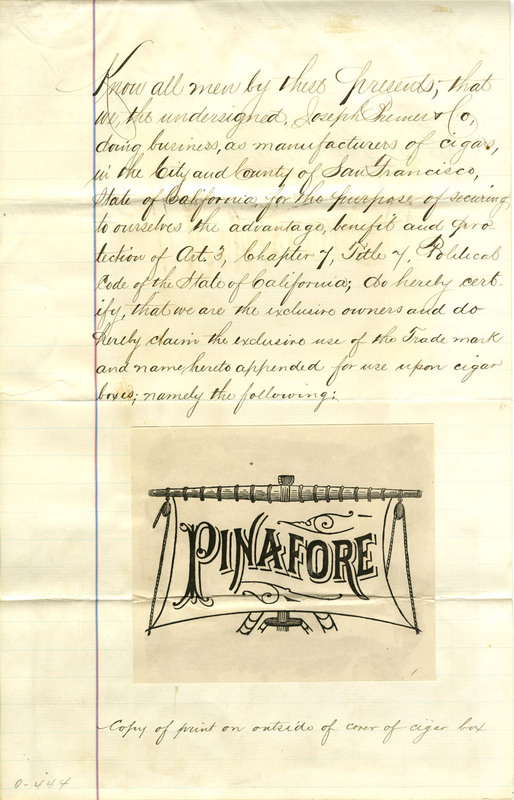 Know all men by these presents; that
we, the undersigned, Joseph Premer & Co,
doing business, as manufacturers of cigars,
in the City and County of San Francisco,
State of California, for the purpose of securing
to ourselves the advantage, benefit and pro-
tection of Art. 3, Chapter 7, Title 7, Political
Code of the State of California; do hereby cert-
ify, that we are the exclusive owners and do
hereby claim the exclusive use of the Trade mark
and name, hereto appended for use upon cigar
boxes; namely the following:
PINAFORE
Copy of print on outside of cover of cigar box
O-444